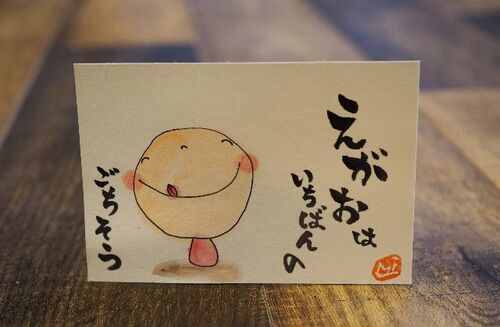 えがおは
いちばんの
ごちそう